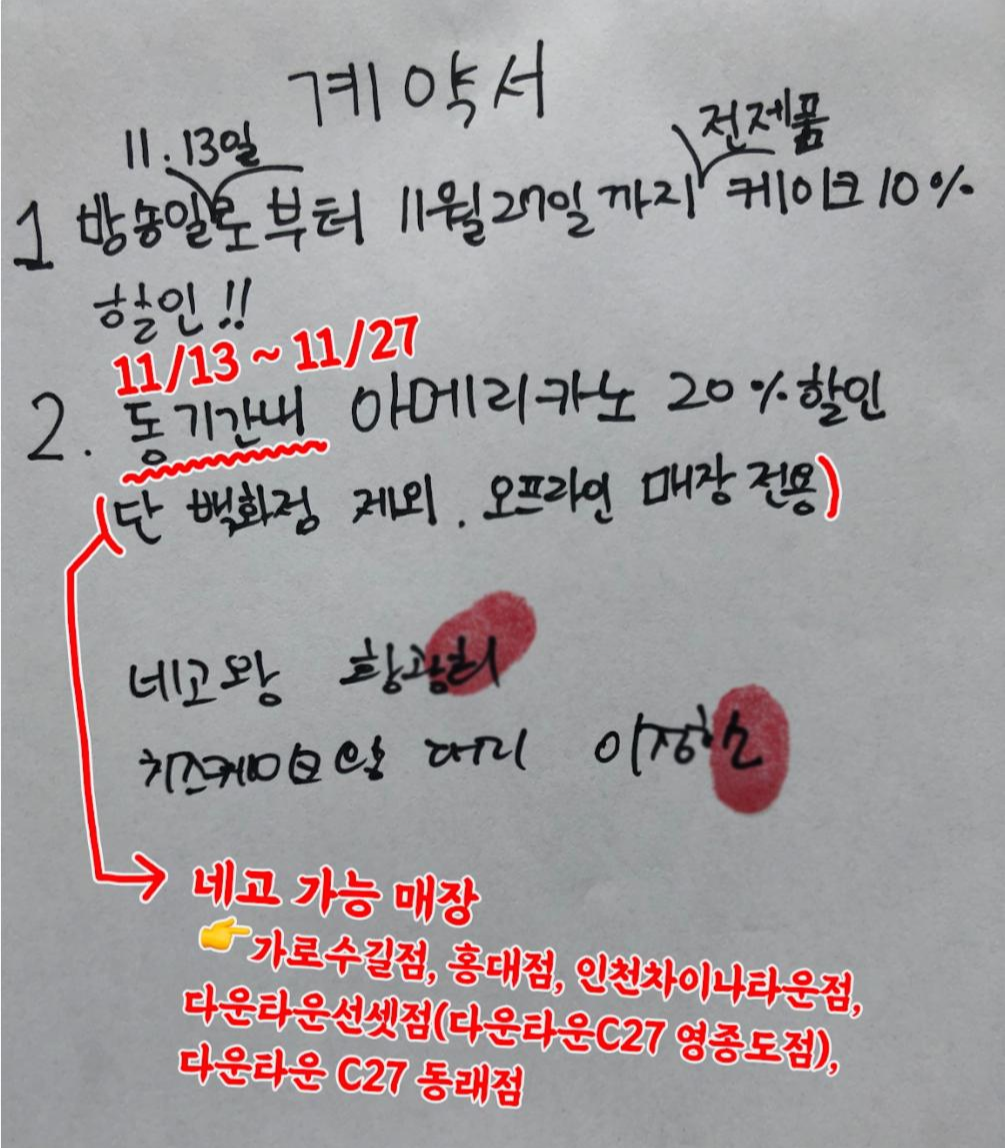 계약서
11.13일
전제품
1 방송일로부터 11월27일까지 케이크 10%
할인!!
11/13 ~ 11/27
2. 동기간내 아메리카노 20%할인
(단 백화점 제외. 오프라인 매장 전용)
네고왕 황광희
대리 이정환
네고 가능 매장
👉가로수길점, 홍대점, 인천차이나타운점,
다운타운선셋점(다운타운C27 영종도점),
다운타운 C27 동래점